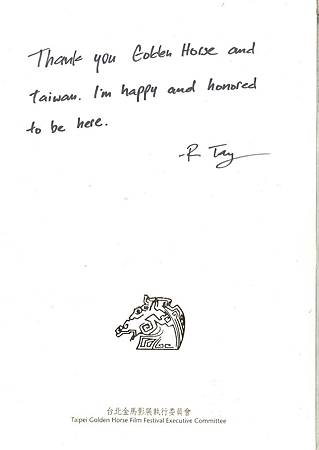 Thank you Golden Horse and
Taiwan. I'm happy and honored
to be here.
-R Tay
台北金馬影展執行委員會
Taipei Golden Horse Film Festival Executive Committee